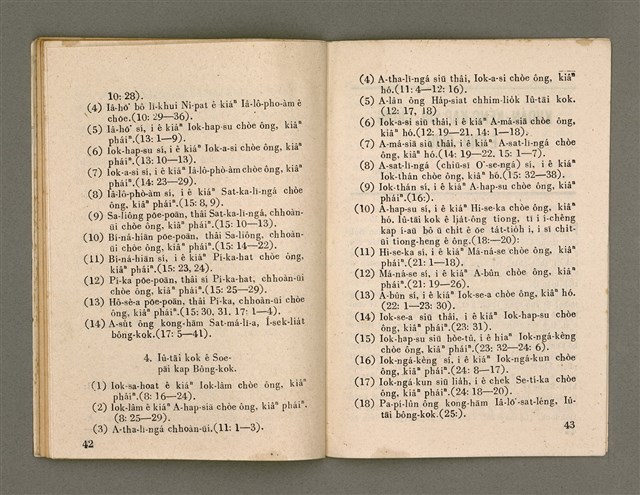 10: 28).
(4) Iâ-hō͘ bô lī-khui Nî-pat ê kiáⁿ Iâ-lô-pho-àm ê
chōe.(10: 29—36).
(5) Iâ-hō͘ sí, i ê kiáⁿ Iok-hap-su chòe ông, kiâⁿ
pháiⁿ.(13: 1—9).
(6) Iok-hap-su sí, i ê kiáⁿ Iok-a-si chòe ông, kiâⁿ
pháiⁿ.(13: 10—13).
(7) Iok-a-si sí, i ê kiáⁿ Iâ-lô-phò-àm chòe ông, kiâⁿ
pháiⁿ.(14: 23—29).
(8) Iâ-lô-phò-àm sí, i ê kiáⁿ Sat-ka-lī-ngá chòe
ông, kiâⁿ pháiⁿ.(15: 8, 9).
(9) Sa-liông pōe-poān, thâi Sat-ka-lī-ngá, chhoàn-
ūi chòe ông, kiâⁿ pháiⁿ.(15: 10—13).
(10) Bí-ná-hiān pōe-poān, thâi Sa-liông, chhoàn-
ūi chòe ông, kiâⁿ pháiⁿ.(15: 14—22).
(11) Bí-ná-hiān sí, i ê kiáⁿ Pí-ka-hat chòe ông,
kiâⁿ pháiⁿ.(15: 23, 24).
(12) Pí-ka pōe-poān, thâi sí Pí-ka-hat, chhoàn-ūi
chòe ông, kiâⁿ pháiⁿ.(15: 25—29).
(13) Hô-sè-a pōe-poān, thâi Pí-ka, chhoàn-ūi chòe
ông, kiâⁿ pháiⁿ.(15: 30, 31. 17: 1—4).
(14) A-su̍t ông kong-hām Sat-má-lī-a, Í-sek-lia̍t
bông-kok.(17: 5—41).
4. Iû-tāi kok ê Soe-
pāi kap Bông-kok.
(1) Iok-sa-hoat ê kiáⁿ Iok-lâm chòe ông, kiâⁿ
pháiⁿ.(8: 16—24).
(2) Iok-lâm ê kiáⁿ A-hap-siā chòe ông, kiâⁿ pháiⁿ.
(8: 25—29).
(3) A-tha-lī-ngá chhoàn-ūi.(11: 1—3).
42
(4) A-tha-lī-ngá siū thâi, Iok-a-si chòe ông, kiâⁿ
hó.(11: 4—12: 16).
(5) A-lân ông Ha̍p-siat chhim-lio̍k Iû-tāi kok.
(12: 17, 18)
(6) Iok-a-si siū thâi, i ê kiáⁿ A-má-siā chòe ông,
kiâⁿ hó.(12: 19—21. 14: 1—18).
(7) A-má-siā siū thâi, i ê kiáⁿ A-sat-lī-ngá chòe
ông, kiâⁿ hó.(14: 19—22. 15: 1—7).
(8) A-sat-lī-ngá (chiū-sī O͘-se-ngá) sí, i ê kiáⁿ
Iok-thán chòe ông, kiâⁿ hó.(15: 32—38).
(9) Iok-thán sí, i ê kiáⁿ A-hap-su chòe ông, kiâⁿ
pháiⁿ.(16:).
(10) A-hap-su sí, i ê kiáⁿ Hi-se-ka chòe ông, kiâⁿ
hó. Iû-tāi kok ê lia̍t-ông tiong, tī i í-chêng
kap í-āu bô ū chi̍t ê ōe ta̍t-tio̍h i, i sī chi̍t-
ūi tiong-heng ê ông.(18:—20):
(11) Hi-se-ka sí, i ê kiáⁿ Má-ná-se chòe ông, kiâⁿ
pháiⁿ.(21: 1—18).
(12) Má-ná-se sí, i ê kiáⁿ A-bûn chòe ông, kiâⁿ
pháiⁿ.(21: 19—26).
(13) A-bûn sí, i ê kiáⁿ Iok-se-a chòe ông, kiâⁿ hó.
(22: 1—23: 30).
(14) Iok-se-a siū thâi, i ê kiáⁿ Iok-hap-su chòe
ông, kiâⁿ pháiⁿ.(23: 31).
(15) Iok-hap-su siū hòe-tû, i ê hiaⁿ Iok-ngá-kèng
chòe ông, kiâⁿ pháiⁿ.(23: 32—24: 6).
(16) Iok-ngá-kèng sí, i ê kiáⁿ Iok-ngá-kun chòe
ông, kiâⁿ pháiⁿ.(24: 8—17).
(17) Iok-ngá-kun siū lia̍h, i ê chek Se-tí-ka chòe
ông, kiâⁿ pháiⁿ.(24: 18—20).
(18) Pa-pí-lûn ông kong-hām Iâ-lō͘-sat-léng, Iû-
tāi bông-kok.(25:).
43